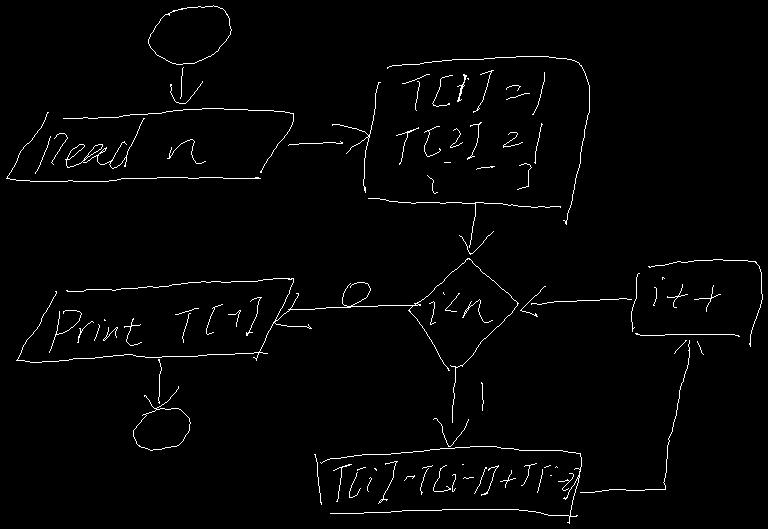 Read n
T[1]=1
T[2]=1
i<n
0
Print T[-1]
i++
1
T[i]=T[i-1]+T[i-2]